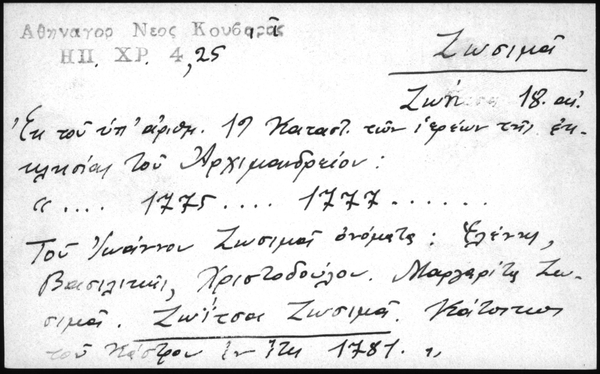 Αθηναγορ Νεος Κουβαρᾶς
ΗΠ. ΧΡ. 4, 25
Ζωσιμᾶ
Ζωή 18. αἰ.
Ἐκ τοῦ ὑπ' ἀριθμ. 19 Καταστ. τῶν ἱερέων τῆς ἐκ-
κλησίας τοῦ Ἀρχιμανδρείου:
" .... 1775 .... 1777 .......
Τοῦ Ἰωάννου Ζωσιμᾶ ὀνόματα: Ἑλένης,
Βασιλικῆς, Χριστοδούλου. Μαργαρίτα Ζω-
σιμᾶ. Ζωΐτσα Ζωσιμᾶ. Κάτοικος
τοῦ Κάστρου ἐν ἔτει 1781. "